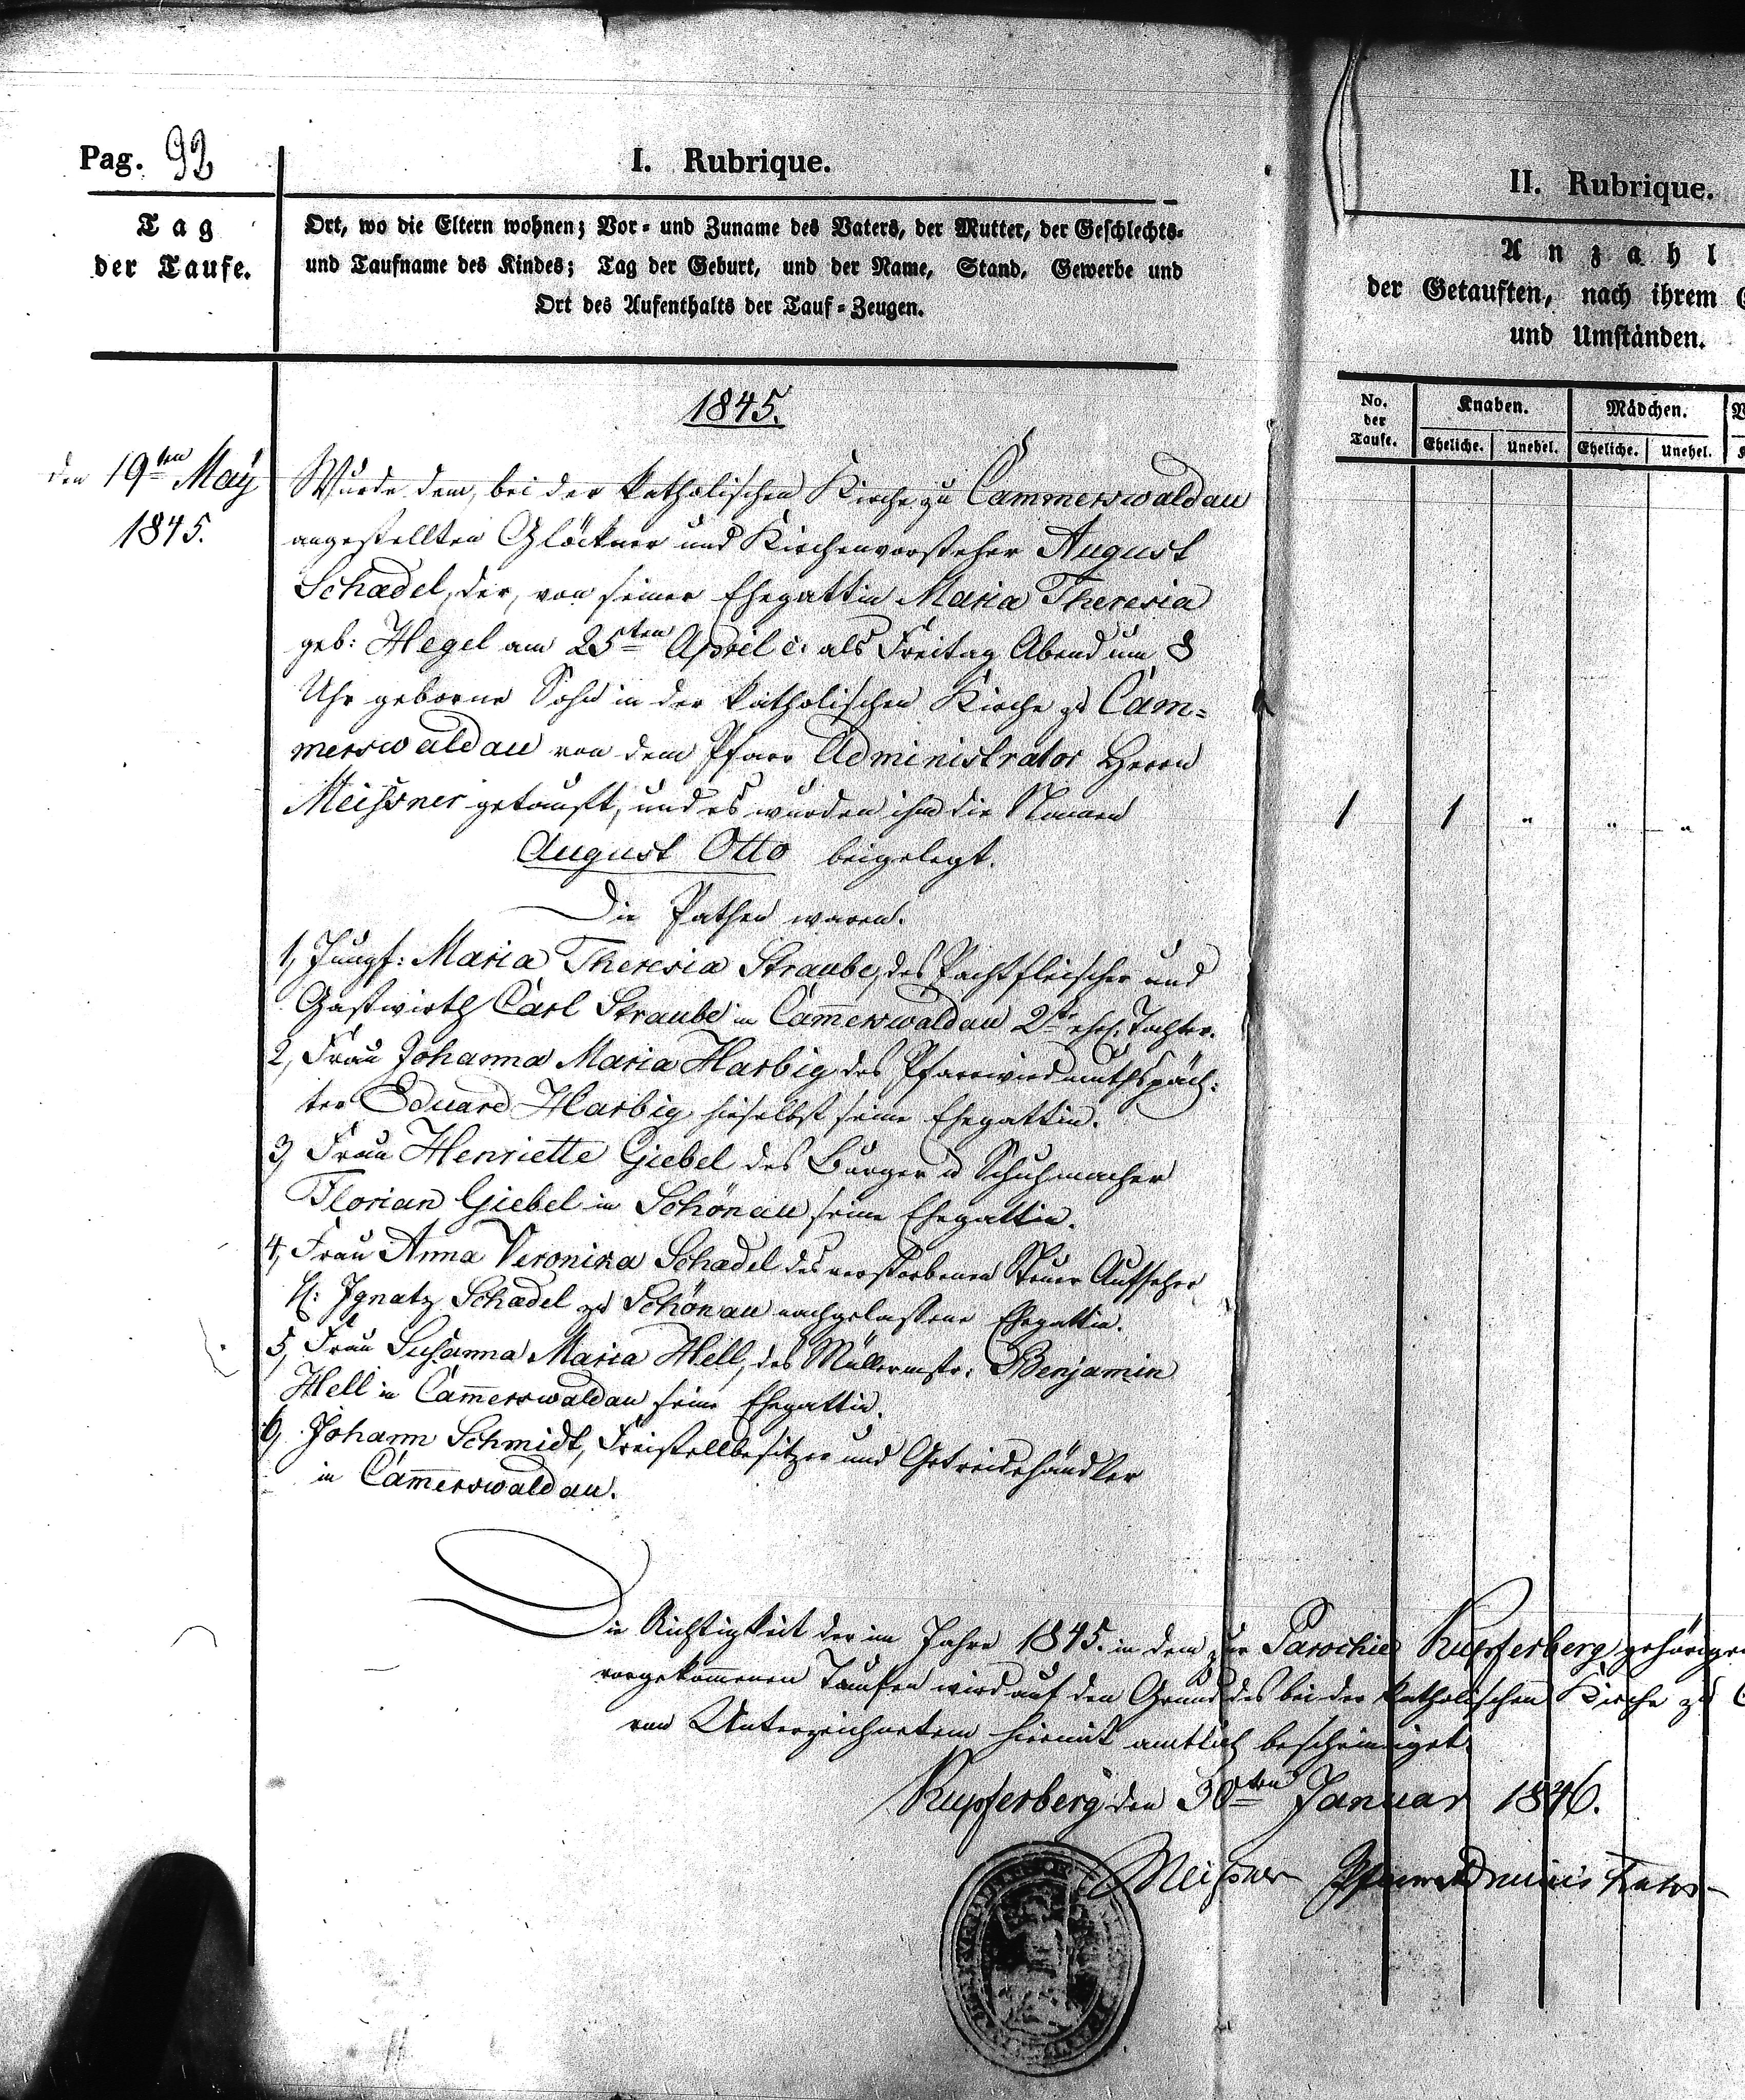 Pag. 92
I. Rubrique.
Tag
der Taufe.
Ort, wo die Eltern wohnen; Vor- und Zuname des Vaters, der Mutter, der Geschlechts-
und Taufname des Kindes; Tag der Geburt, und der Name, Stand, Gewerbe und
Ort des Aufenthalts der Tauf-Zeugen.
1845.
den 19ten May
1845.
Wurde dem, bei der katholischen Kirche zu Cammerswaldau
angestellten Glöckner und Kirchenvorsteher August
Schadel, der, von seiner Ehegattin Maria Theresia
geb: Hegel am 25ten April c. als Freitag Abend um 8
Uhr geborne Sohn in der katholischen Kirche zu Cam=
merswaldau von dem Pfarr Administrator Herrn
Meißner getauft, und es wurden ihm die Namen
August Otto beigelegt.
Die Pathen waren.
1, Jungf: Maria Theresia Straube, des Pachtfleischer und
Gastwirth Carl Straube in Cam̄erswaldau 2te ehel. Tochter.
2, Frau Johanna Maria Harbig des Pfarrwiedmuthspäch=
ter Eduard Harbig hieselbst seine Ehegattin.
3, Frau Henriette Giebel des Bürger u Schuhmacher
Florian Giebel in Schönau seine Ehegattin.
4, Frau Anna Veronika Schadel des verstorbenen Steuer Aufseher
H: Ignatz Schadel zu Schönau nachgelassene Ehegattin.
5, Frau Susanna Maria Hell, des Müllermstr: Benjamin
Hell in Cam̄erswaldau seine Ehegattin.
6, Johann Schmidt, Freistellbesitzer und Getreidehändler
in Cam̄erswaldau.
Die Richtigkeit der im Jahre 1845. in dem zur Parochie Kupferberg gehörigen
vorgekom̄enen Taufen wird auf den Grund des bei der katholischen Kirche zu C
von Unterzeichnetem hiermit amtlich bescheiniget.
Kupferberg den 30ten Januar 1846.
Meißner Pfarr Administrator
II. Rubrique.
Anzahl
der Getauften, nach ihrem G
und Umständen.
No.
der
Taufe.
Knaben.
Mädchen.
Eheliche.
Unehel.
Eheliche.
Unehel.
1 1 " " "